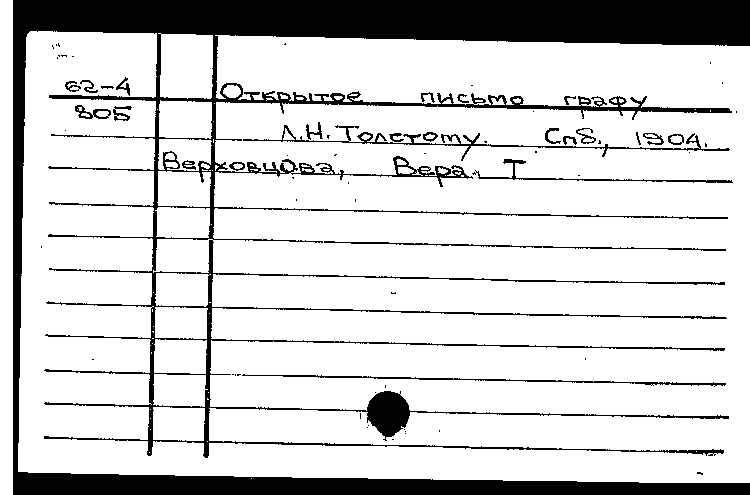 62-4 Открытое письмо графу
805 Л.Н. Толстому. Спб., 1904.
Верховцова, Вера. Т